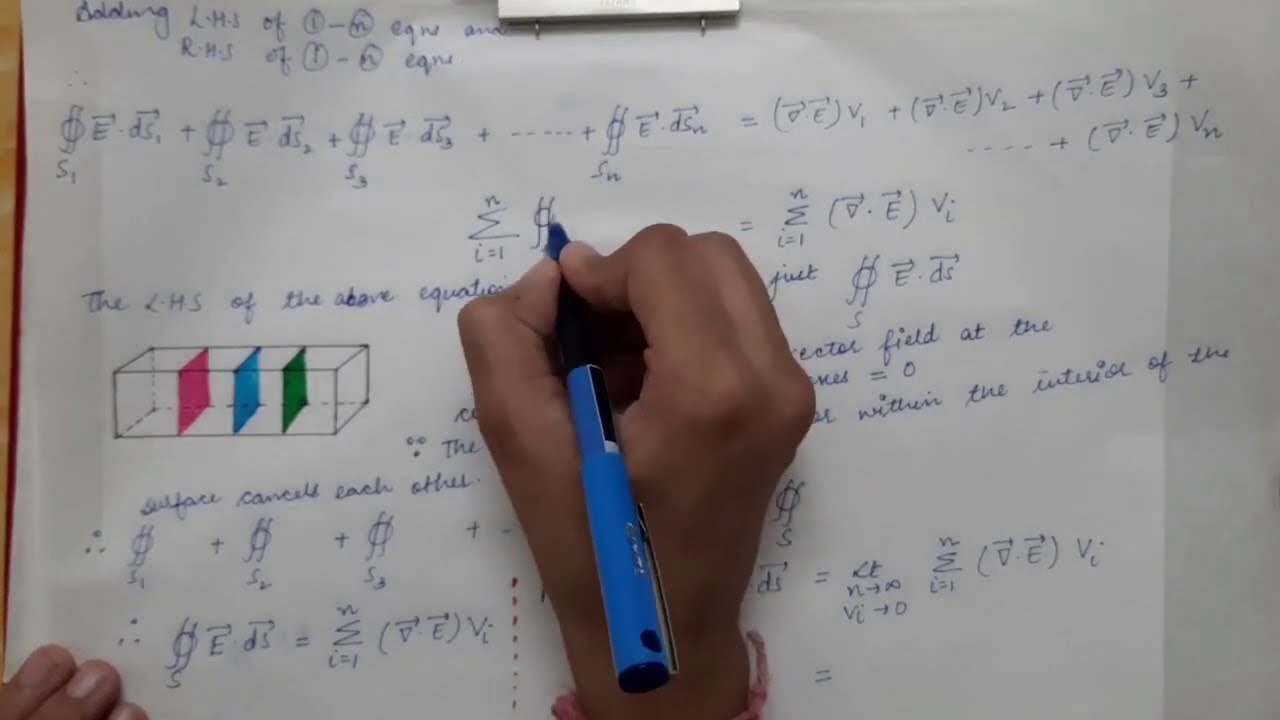 Adding L.H.S of ① – ⓝ eqns and
R.H.S of ① – ⓝ eqns.
∴
∯_{S₁} E⃗ · ds⃗₁ + ∯_{S₂} E⃗ ds⃗₂ + ∯_{S₃} E⃗ · ds⃗₃ + ----- + ∯_{Sₙ} E⃗ · ds⃗ₙ = (∇⃗ · E⃗) V₁ + (∇⃗ · E⃗) V₂ + (∇⃗ · E⃗) V₃ +
.... + (∇⃗ · E⃗) Vₙ
∑_{i=1}^{n} ∯ = ∑_{i=1}^{n} (∇⃗ · E⃗) Vᵢ
The L.H.S of the above equation just ∯_S E⃗ · ds⃗
vector field at the
= 0
∵ The within the interior of the
surface cancels each other.
∴ ∯_{S₁} + ∯_{S₂} + ∯_{S₃} + - ∯_S
∴ ∯_S E⃗ · ds⃗ = ∑_{i=1}^{n} (∇⃗ · E⃗) Vᵢ
· ds⃗ = Lt_{n→∞, Vᵢ→0} ∑_{i=1}^{n} (∇⃗ · E⃗) Vᵢ
=